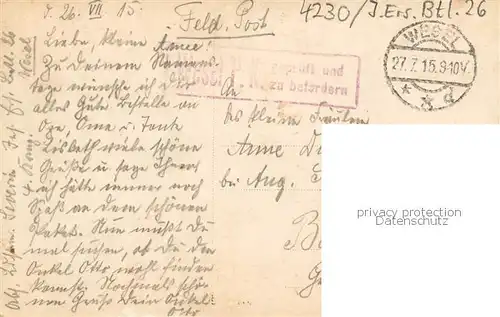 d. 26. VII 15.
Feld-Post
4230/J.Ers.Btl.26
Liebe, kleine Anne!
Zu Deinem Namens-
tage wünsche ich Dir
alles Gute. Bestelle an
Opa, Oma u. Tante
Lisbeth viele schöne
Grüße u. sage Ihnen
ich hätte immer noch
Spaß an dem schönen
Paket. Nun mußt Du
mal suchen, ob Du den
Onkel Otto wohl finden
kannst. Nochmals schö-
nen Gruß Dein Onkel
Otto
geprüft und
zu befördern
WESEL
27.7.15.9-10V.
* * d
An
das kleine Fräulein
Anne
bei Aug.
privacy protection
Datenschutz
Wesel